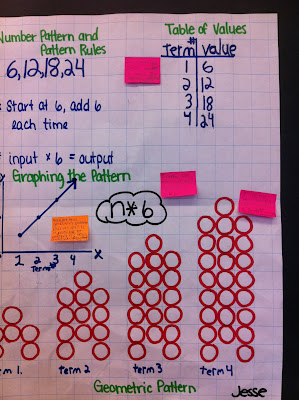 Number Pattern and
Pattern Rules
6,12,18,24
Start at 6, add 6
each time
input × 6 = output
Table of Values
term # value
1 6
2 12
3 18
4 24
Graphing the Pattern
n*6
1 2 3 4 x
Term #
term 2
term 3
term 4
Geometric Pattern
Jesse